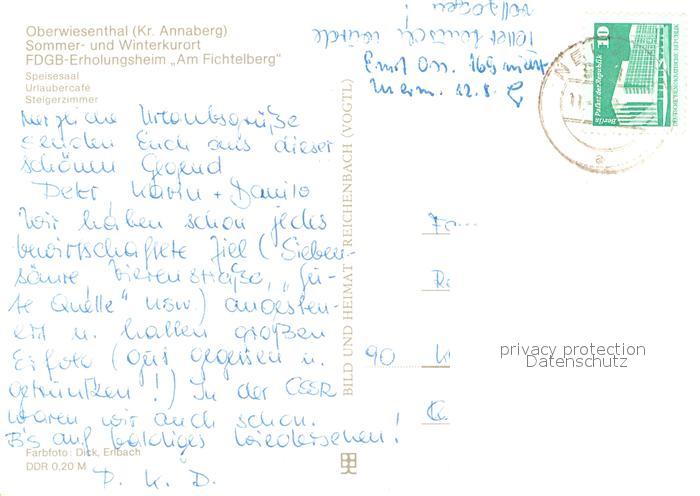 Oberwiesenthal (Kr. Annaberg)
Sommer- und Winterkurort
FDGB-Erholungsheim „Am Fichtelberg“
Speisesaal
Urlaubercafé
Steigerzimmer
Herzliche Urlaubsgrüße
senden Euch aus dieser
schönen Gegend
Peter, Karin + Danilo
Wir haben schon jedes
bewirtschaftete Ziel (Sieben-
säure, Vierenstraße, „Gu-
te Quelle“ usw) angesteu-
ert u. hatten großen
Erfolg (gut gegessen u.
getrunken!) In der CSSR
waren wir auch schon.
Bis auf baldiges Wiedersehen!
P. K. D.
Farbfoto: Dick, Erlbach
DDR 0,20 M
BILD UND HEIMAT REICHENBACH (VOGTL)
vollzogen!
wurde
12.8.
10
Berlin Palast der Republik
DEUTSCHE DEMOKRATISCHE REPUBLIK
90
privacy protection
Datenschutz